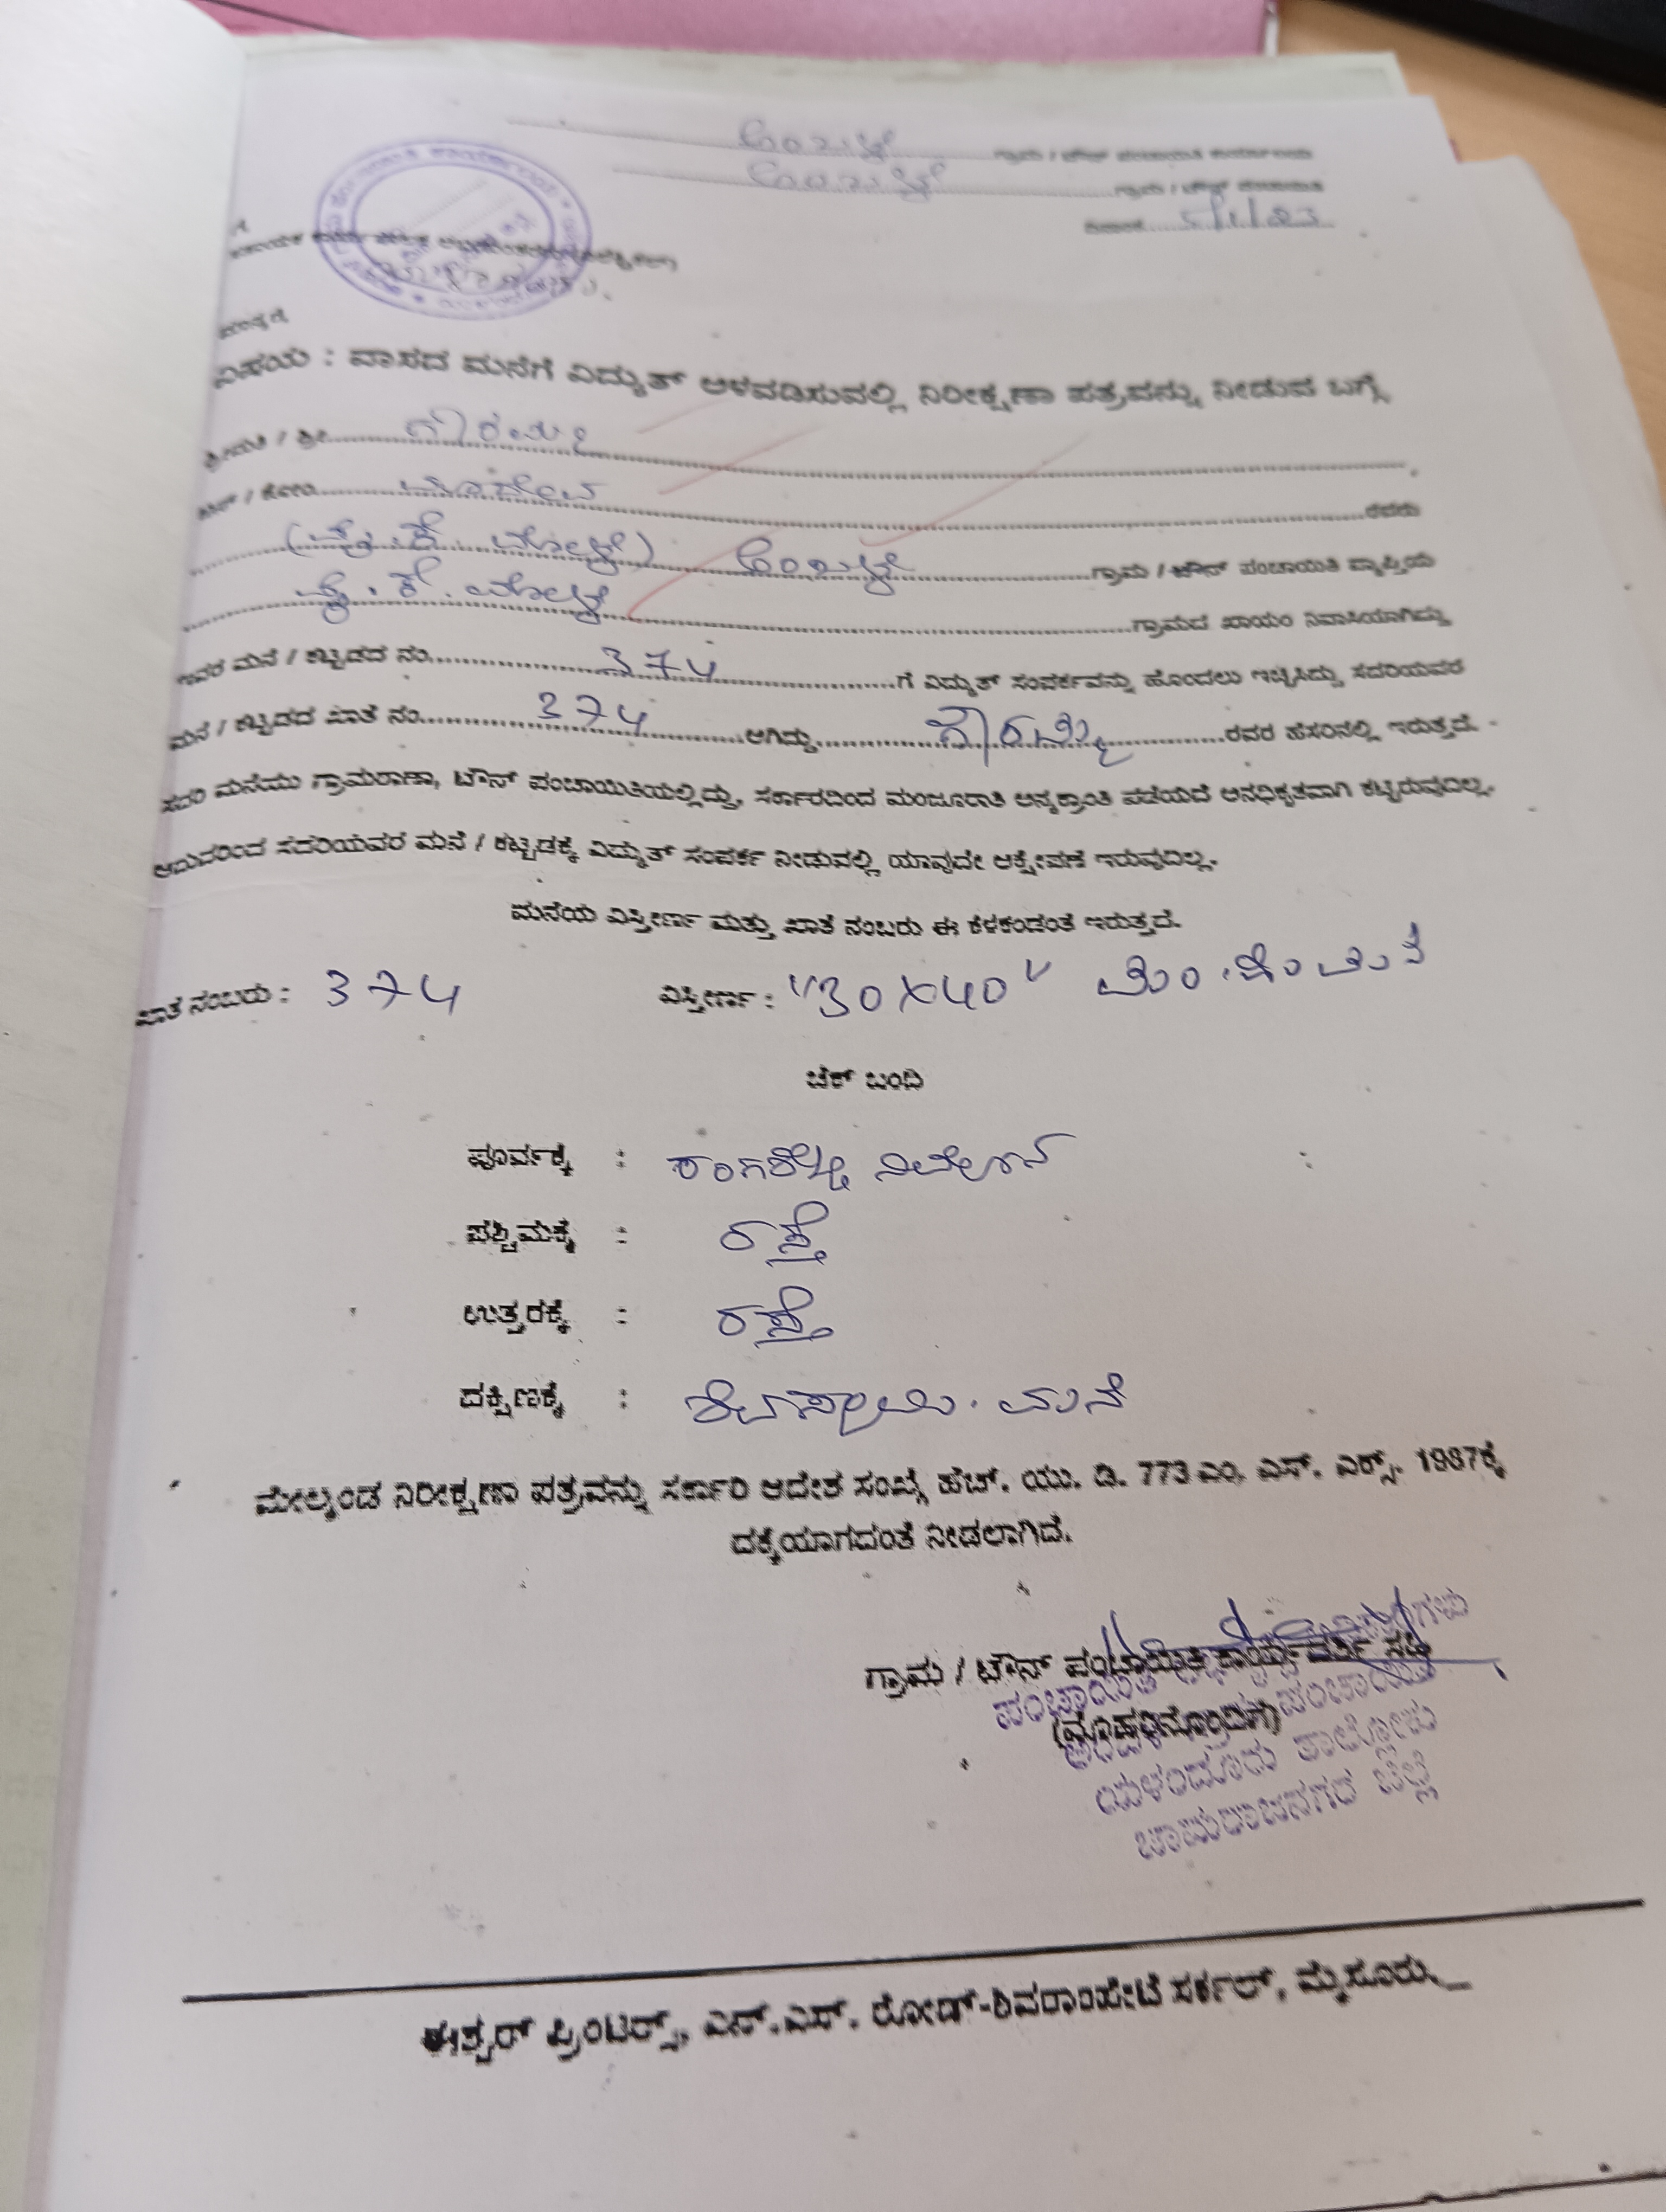 ಅಂಬಳೆ ಗ್ರಾಮ / ಟೌನ್ ಪಂಚಾಯಿತಿ ಕಾರ್ಯಾಲಯ
ಅಂಬಳೆ ಗ್ರಾಮ / ಟೌನ್ ಪಂಚಾಯಿತಿ
ದಿನಾಂಕ 5/1/23
ಗೆ,
ಮಾನ್ಯರೆ,
ವಿಷಯ : ವಾಸದ ಮನೆಗೆ ವಿದ್ಯುತ್ ಅಳವಡಿಸುವಲ್ಲಿ ನಿರೀಕ್ಷಣಾ ಪತ್ರವನ್ನು ನೀಡುವ ಬಗ್ಗೆ
ಶ್ರೀಮತಿ / ಶ್ರೀ ಗೌರಮ್ಮ
ಬಿನ್ / ಕೋಂ ಮಾದೇವ ರವರು
(ವೈ.ಕೆ. ಮೋಳೆ) ಅಂಬಳೆ ಗ್ರಾಮ / ಟೌನ್ ಪಂಚಾಯಿತಿ ವ್ಯಾಪ್ತಿಯ
ವೈ.ಕೆ. ಮೋಳೆ ಗ್ರಾಮದ ಖಾಯಂ ನಿವಾಸಿಯಾಗಿದ್ದು
ಇವರ ಮನೆ / ಕಟ್ಟಡದ ನಂ. 374 ಗೆ ವಿದ್ಯುತ್ ಸಂಪರ್ಕವನ್ನು ಹೊಂದಲು ಇಚ್ಛಿಸಿದ್ದು ಸದರಿಯವರ
ಮನೆ / ಕಟ್ಟಡದ ಖಾತೆ ನಂ. 374 ಆಗಿದ್ದು ಗೌರಮ್ಮ ರವರ ಹೆಸರಿನಲ್ಲಿ ಇರುತ್ತದೆ.
ಸದರಿ ಮನೆಯು ಗ್ರಾಮಠಾಣಾ, ಟೌನ್ ಪಂಚಾಯಿತಿಯಲ್ಲಿದ್ದು, ಸರ್ಕಾರದಿಂದ ಮಂಜೂರಾತಿ ಅನ್ಯಕ್ರಾಂತಿ ಪಡೆಯದೆ ಅನಧಿಕೃತವಾಗಿ ಕಟ್ಟಿರುವುದಿಲ್ಲ.
ಆದುದರಿಂದ ಸದರಿಯವರ ಮನೆ / ಕಟ್ಟಡಕ್ಕೆ ವಿದ್ಯುತ್ ಸಂಪರ್ಕ ನೀಡುವಲ್ಲಿ ಯಾವುದೇ ಆಕ್ಷೇಪಣೆ ಇರುವುದಿಲ್ಲ.
ಮನೆಯ ವಿಸ್ತೀರ್ಣ ಮತ್ತು ಖಾತೆ ನಂಬರು ಈ ಕೆಳಕಂಡಂತೆ ಇರುತ್ತದೆ.
ಖಾತೆ ನಂಬರು : 374 ವಿಸ್ತೀರ್ಣ : "30X40"
ಚೆಕ್ ಬಂದಿ
ಪೂರ್ವಕ್ಕೆ : ರಂಗಶೆಟ್ಟಿ ನಿವೇಶನ
ಪಶ್ಚಿಮಕ್ಕೆ : ರಸ್ತೆ
ಉತ್ತರಕ್ಕೆ : ರಸ್ತೆ
ದಕ್ಷಿಣಕ್ಕೆ : ಮನೆ
ಮೇಲ್ಕಂಡ ನಿರೀಕ್ಷಣಾ ಪತ್ರವನ್ನು ಸರ್ಕಾರಿ ಆದೇಶ ಸಂಖ್ಯೆ ಹೆಚ್. ಯು. ಡಿ. 773 ಎಂ. ಎಸ್. ಎಕ್ಸ್. 1987ಕ್ಕೆ
ದಕ್ಕೆಯಾಗದಂತೆ ನೀಡಲಾಗಿದೆ.
ಗ್ರಾಮ / ಟೌನ್ ಪಂಚಾಯಿತಿ ಕಾರ್ಯದರ್ಶಿ ಸಹಿ
(ಮೊಹರಿನೊಂದಿಗೆ)
ಯಳಂದೂರು ತಾಲ್ಲೋಕು
ಚಾಮರಾಜನಗರ ಜಿಲ್ಲೆ
ಈಶ್ವರ್ ಪ್ರಿಂಟರ್ಸ್, ಎನ್.ಎಸ್. ರೋಡ್-ಶಿವರಾಂಪೇಟೆ ಸರ್ಕಲ್, ಮೈಸೂರು.